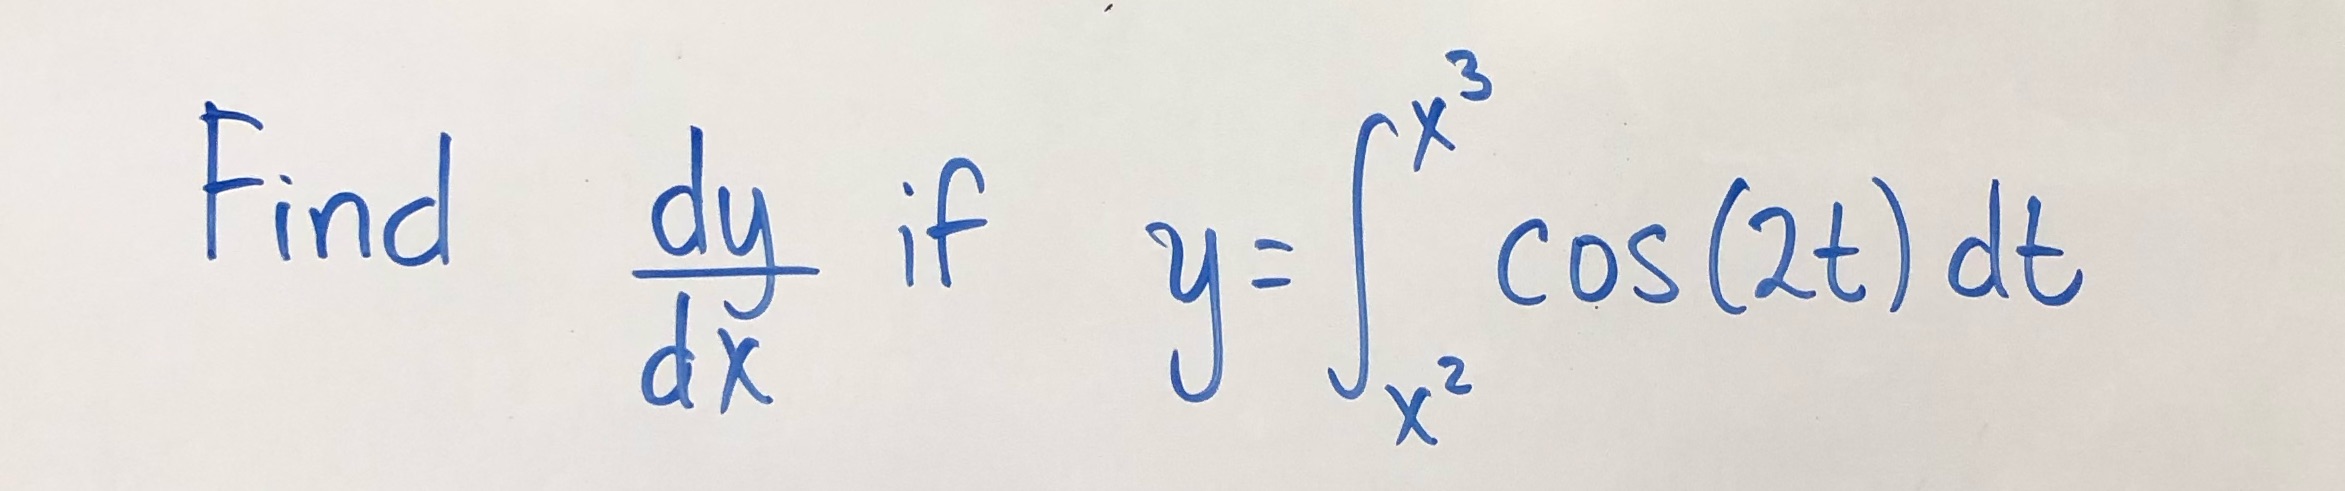 Find dy/dx if y = ∫_{x²}^{x³} cos(2t) dt